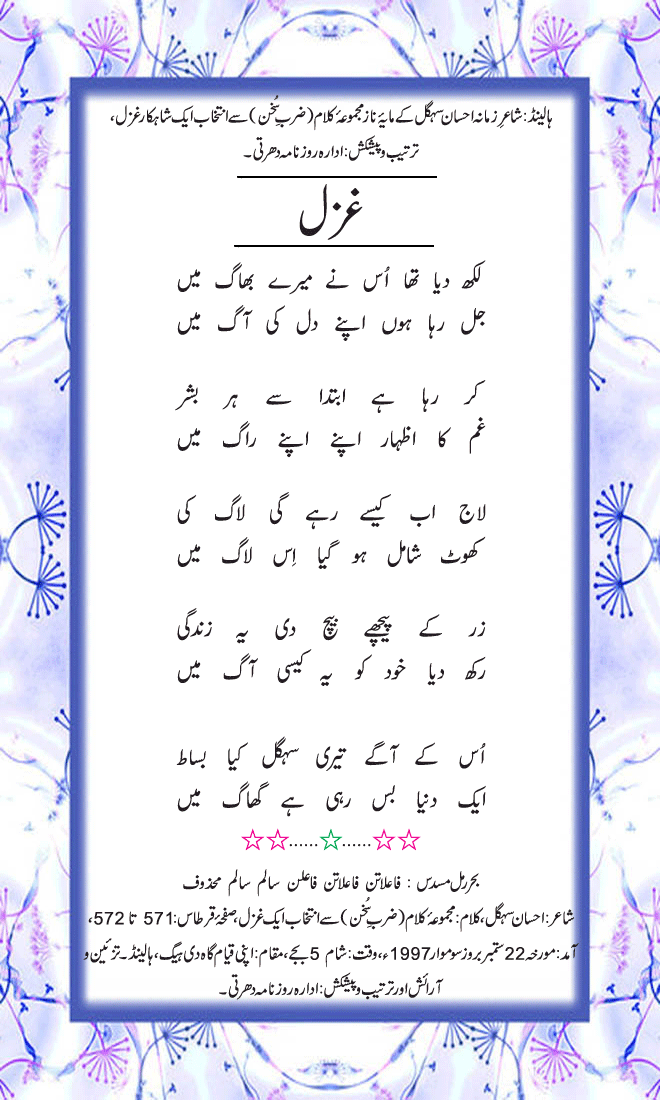 ہالینڈ: شاعرِ زمانہ احسان سہگل کے مایۂ ناز مجموعۂ کلام (ضربِ سُخن) سے انتخاب ایک شاہکار غزل،
ترتیب و پیشکش: ادارہ روزنامہ دھرتی۔
غزل
لکھ دیا تھا اُس نے میرے بھاگ میں
جل رہا ہوں اپنے دل کی آگ میں
کر رہا ہے ابتدا سے ہر بشر
غم کا اظہار اپنے اپنے راگ میں
لاج اب کیسے رہے گی لاگ کی
کھوٹ شامل ہو گیا اِس لاگ میں
زر کے پیچھے بیچ دی یہ زندگی
رکھ دیا خود کو یہ کیسی آگ میں
اُس کے آگے تیری سہگل کیا بساط
ایک دنیا بس رہی ہے گھاگ میں
☆☆......☆......☆☆
بحر رمل مسدس : فاعلاتن فاعلاتن فاعلن سالم سالم محذوف
شاعر: احسان سہگل، کلام: مجموعۂ کلام (ضربِ سُخن) سے انتخاب ایک غزل، صفحۂ قرطاس: 571 تا 572،
آمد: مورخہ 22 ستمبر بروز سوموار 1997ء، وقت: شام 5 بجے، مقام: اپنی قیام گاہ دی ہیگ، ہالینڈ۔ تزئین و
آرائش اور ترتیب و پیشکش: ادارہ روزنامہ دھرتی۔